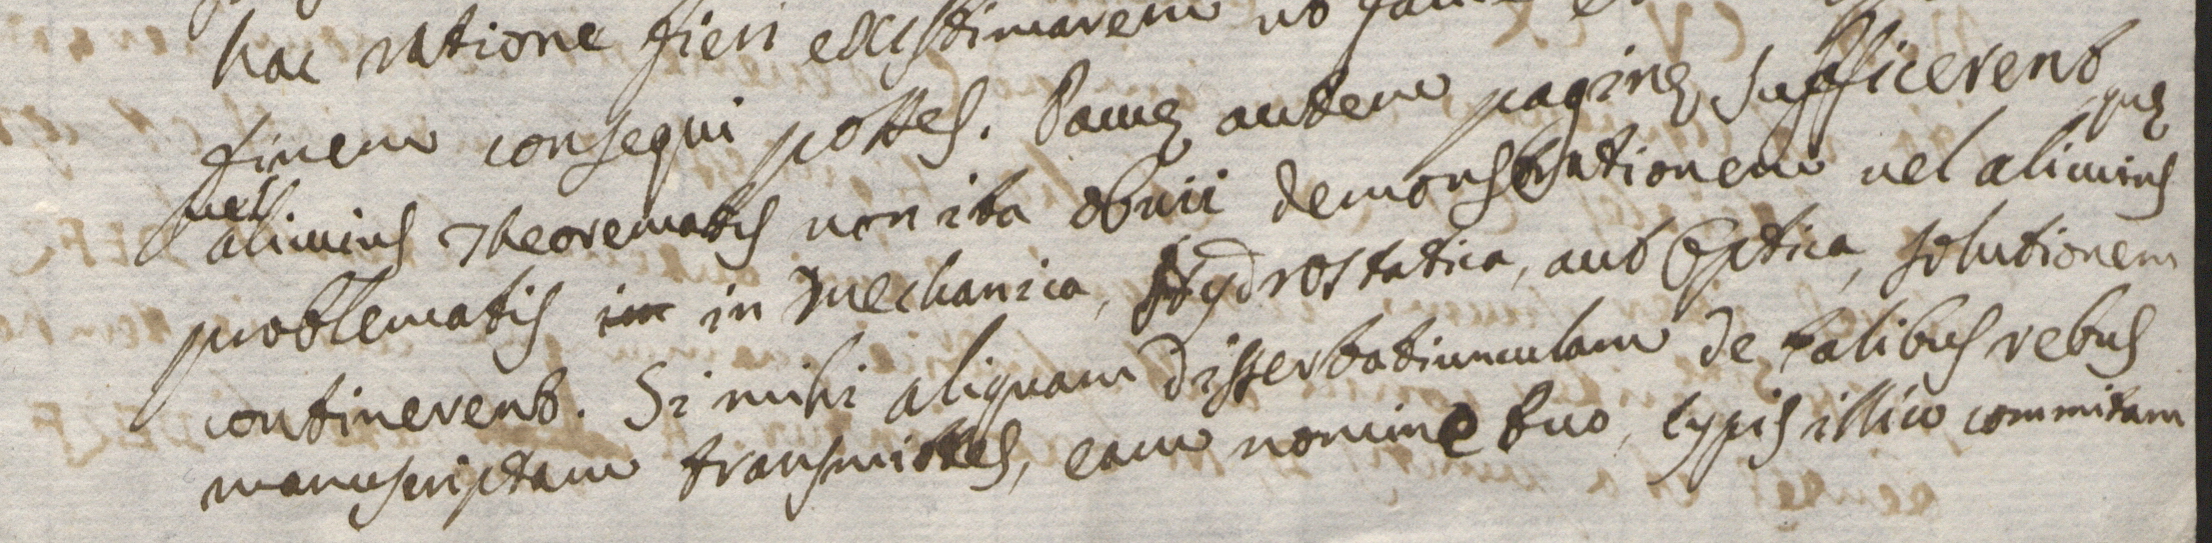 hac ratione fieri existimarem ut
finem consequi posses. Paucę autem paginę sufficerent quę
vel alicuius Theorematis non ita obuii demonstrationem uel alicuius
problematis in in Mechanica, Hydrostatica, aut Optica, solutionem
continerent. Si mihi aliquam dissertatiunculam de talibus rebus
manuscriptam transmittes, eam nomine tuo, typis illico committam